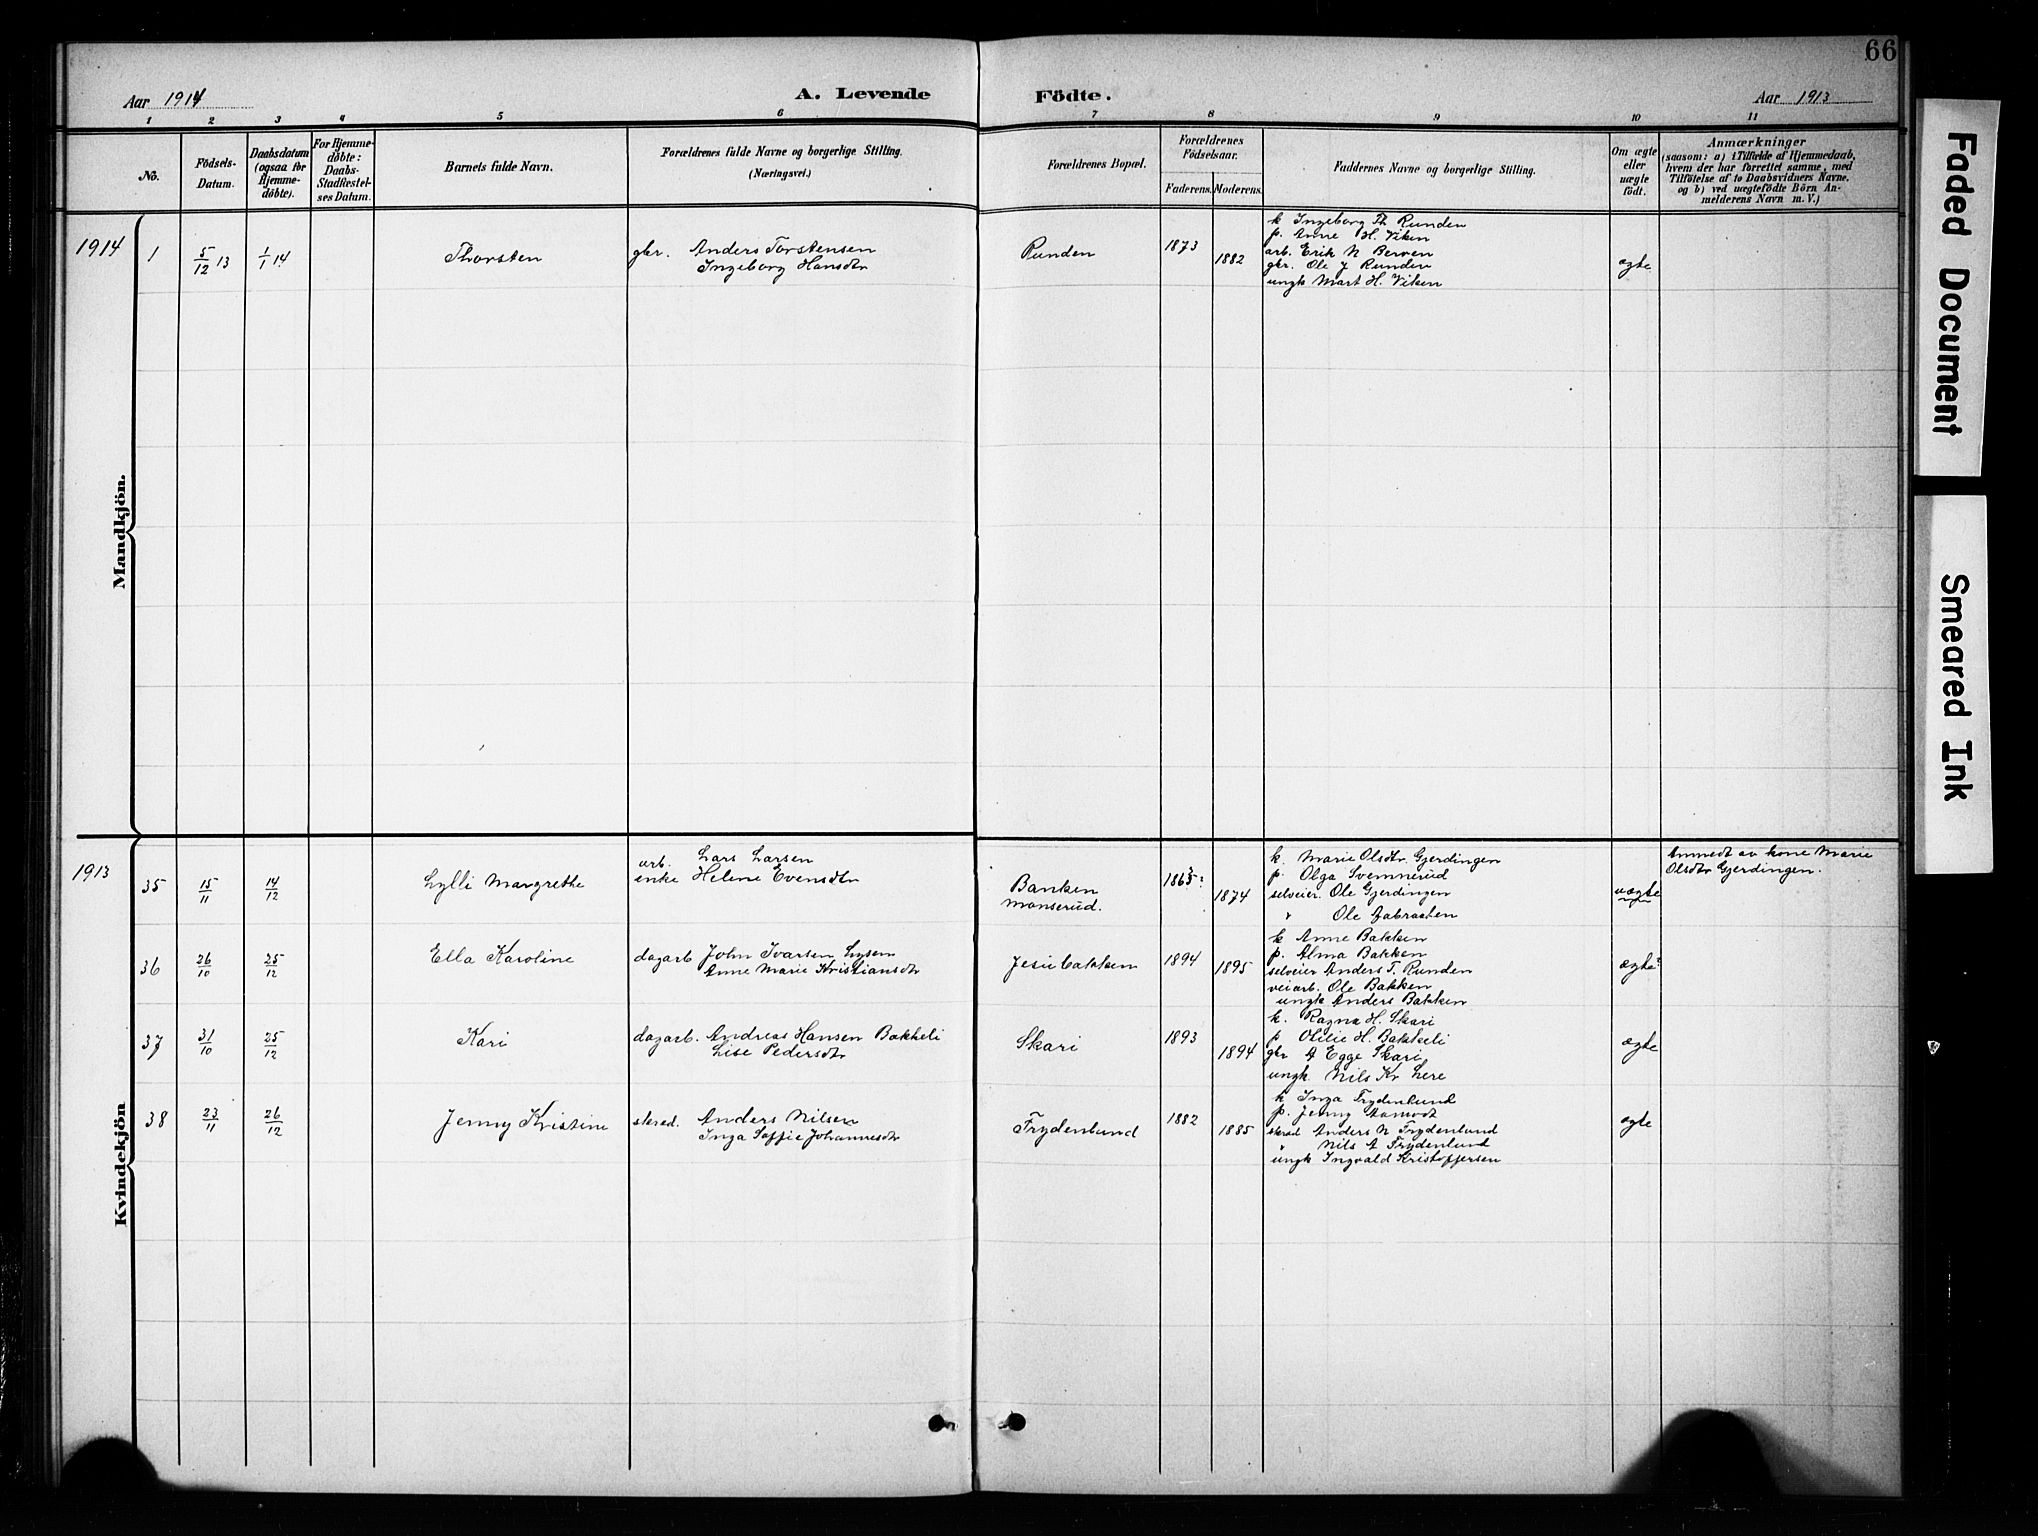 66
Aar 1914
A. Levende
Födte.
Aar 1913
1 2 3 4 5 6 7 8 9 10 11
No.
Födsels-Datum.
Daabsdatum (ogsaa for Hjemme-döbte).
For Hjemme-döbte: Daabs-Stadfæstel-ses Datum.
Barnets fulde Navn.
Forældrenes fulde Navne og borgerlige Stilling.
(Næringsvei.)
Forældrenes Bopæl.
Forældrenes Födselsaar.
Faderens. Moderens.
Faddernes Navne og borgerlige Stilling.
Om ægte eller uægte födt.
Anmærkninger
(saasom: a) i Tilfælde af Hjemmedaab,
hvem der har forrettet samme, med
Tilföielse af to Daabsvidners Navne.
og b) ved uægtefödte Börn An-
melderens Navn m. V.)
Mandkjön.
1914 1 5/12 13 1/1 14 Thorsten
gbr. Anders Torstensen
Ingeborg Hansdtr
Runden 1873 1882
k Ingeborg Th. Runden
p. Anne H. Viken
arb. Erik N Berven
gbr. Ole J Runden
ungk Mart H. Viken
ægte
Kvindekjön
1913 35 15/11 14/12 Lylli Margrethe
arb. Lars Larsen
enke Helene Evensdtr
Banken
Monserud.
1865? 1874
k. Marie Olsdtr. Gjerdingen
p. Olga Svennerud
selveier. Ole Gjerdingen
" Ole
uægte
Anmedt av kone Marie
Olsdtr Gjerdingen.
36 26/10 25/12 Ella Karoline
dagarb John Ivarsen Lysen
Anne Marie Kristiansdtr
Jesubakken 1894 1895
k Anne Bakken
p. Alma Bakken
selveier Anders T. Runden
veiarb. Ole Bakken
ungk Anders Bakken
ægte?
37 31/10 25/12 Kari
dagarb. Andreas Hansen Bakkeli
Lise Pedersdtr
Skari 1893 1894
k. Ragna H. Skari
p Otilie H. Bakkeli
gbr A Egge Skari
ungk. Nils Kr Lere
ægte
38 23/11 26/12 Jenny Kristine
skred. Anders Nilsen
Inga Soffie Johannesdtr
Frydenlund 1882 1885
k Inga Frydenlund
p. Jenny Aamodt
skred Anders N Frydenlund
" Nils A Frydenlund
ungk Ingvald Kristoffersen
ægte
Faded Document
Smeared Ink